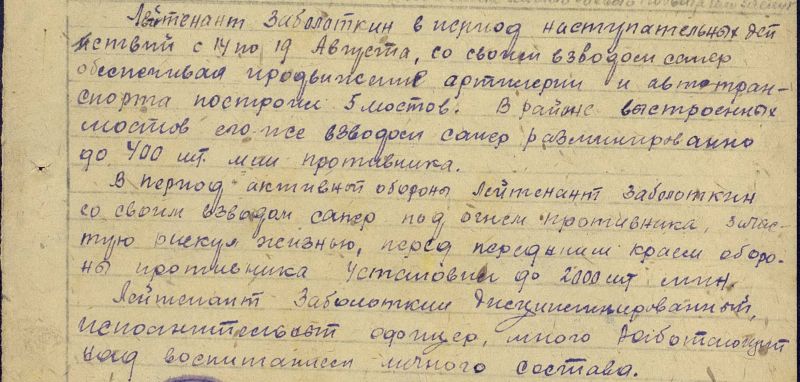 Лейтенант Заболоткин в период наступательных дей
ствий с 14 по 19 Августа, со своим взводом сапер
обеспечивая продвижение артилерии и автотран-
спорта построил 5 мостов. В районе выстроенных
мостов его же взводом сапер разминировано
до 400 шт. мин противника.
В период активной обороны Лейтенант Заболоткин
со своим взводом сапер под огнем противника, зачас-
тую рискуя жизнью, перед передним краем оборо-
ны противника установил до 2000 шт мин.
Лейтенант Заболоткин дисциплинированный,
исполнительный офицер, много работающий
над воспитанием личного состава.